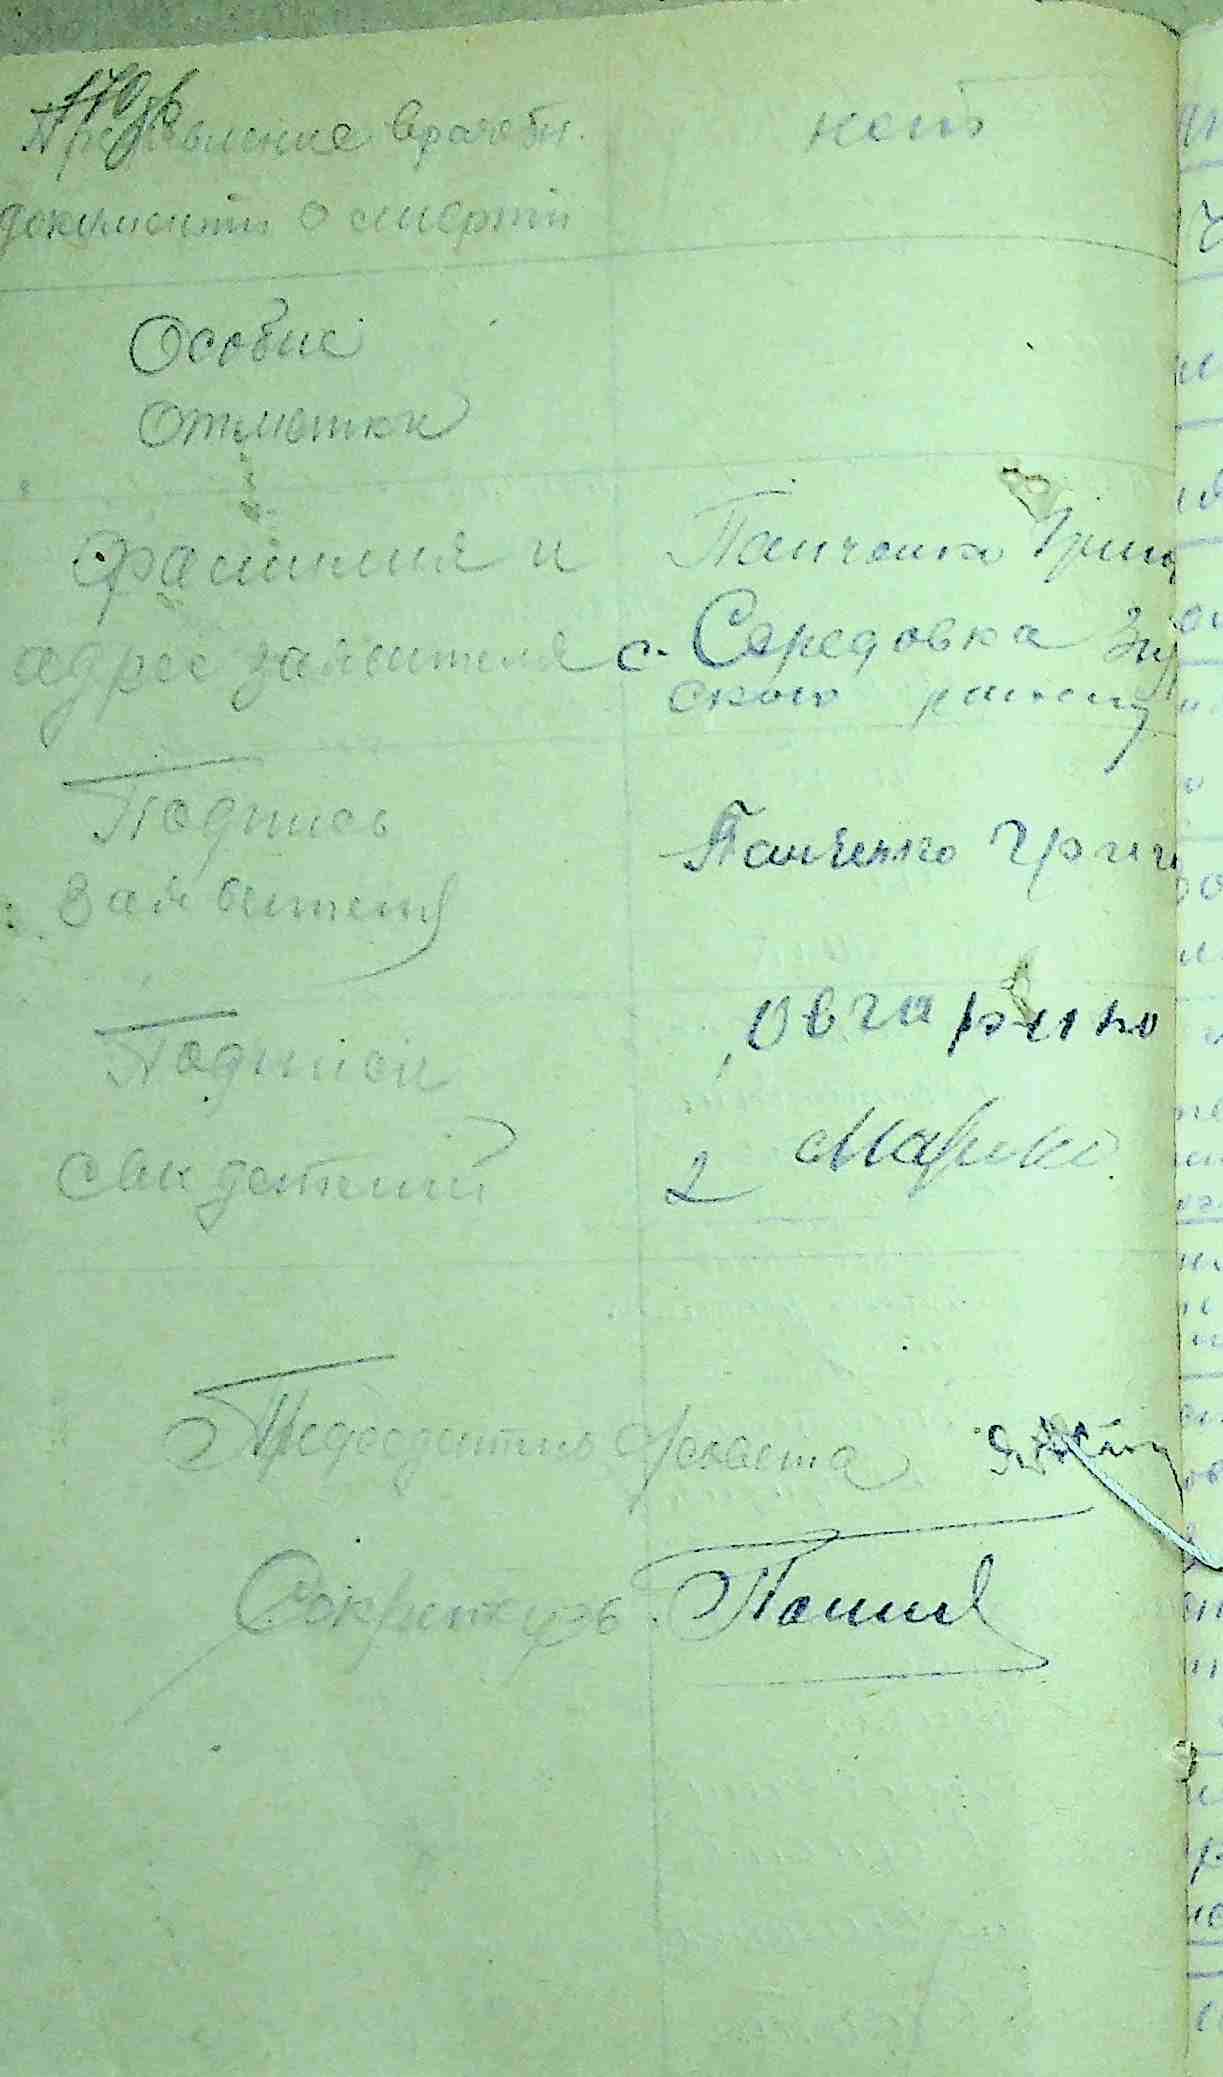 170 об
Предъявление врачебн. нет
документы о смерти
Особие
отметки
Фамилия и Панченко Григ
адрес заявителя с. Середовка
ского району
Подпись
Панченко Григ
Заявителя
Овчаренко
Подписи
2 Марко
свидетелей
Председатель с/совета
Секретарь